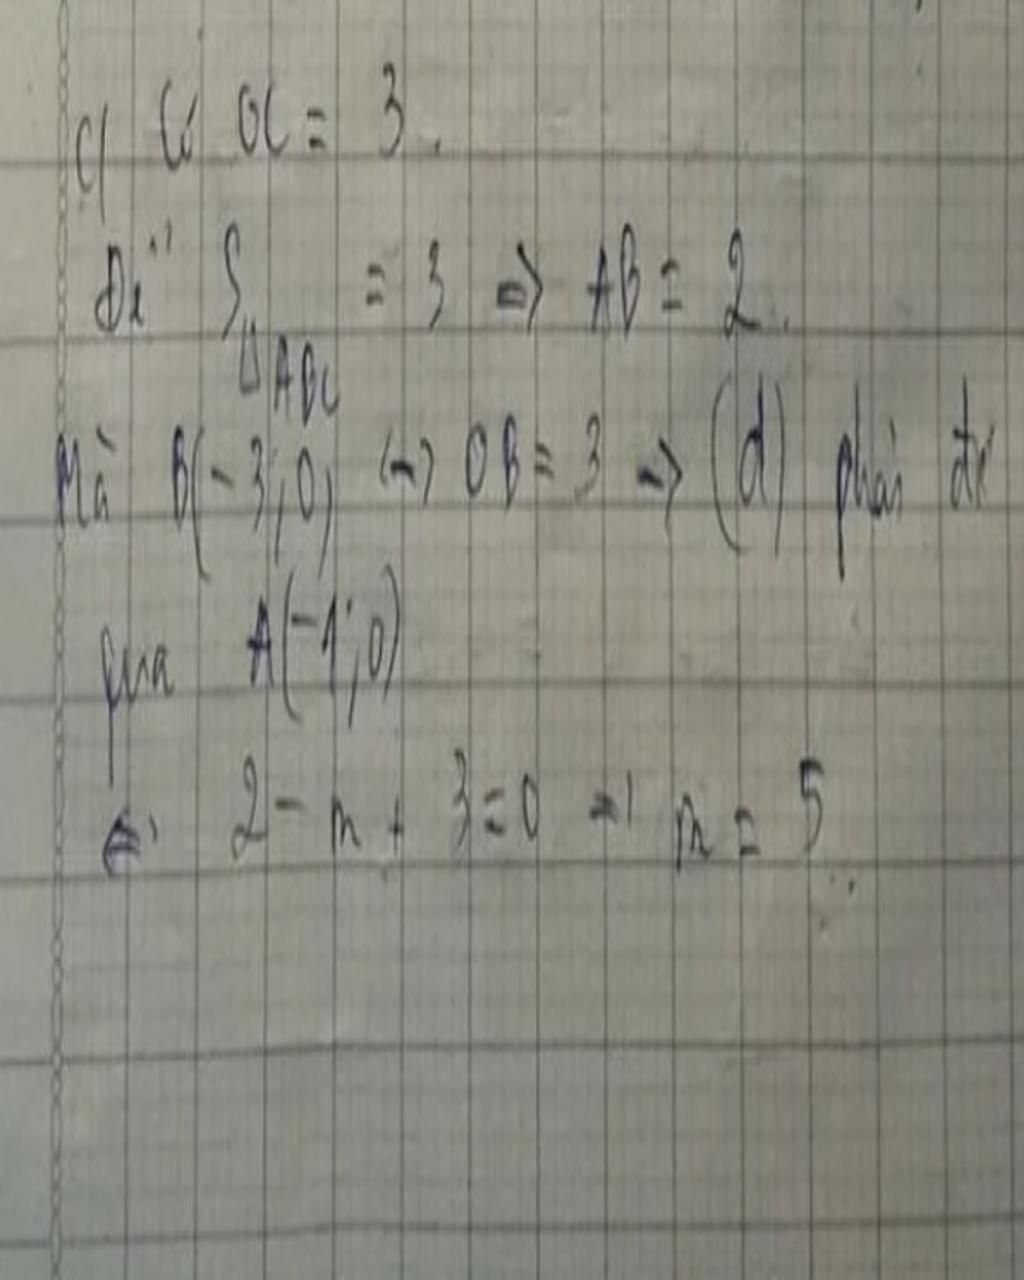 c) Có OC = 3.
Để S△ABC = 3 => AB = 2.
Mà B(-3; 0) => OB = 3 => (d) phải đi
qua A(-1; 0)
<=> 2 - m + 3 = 0 => m = 5